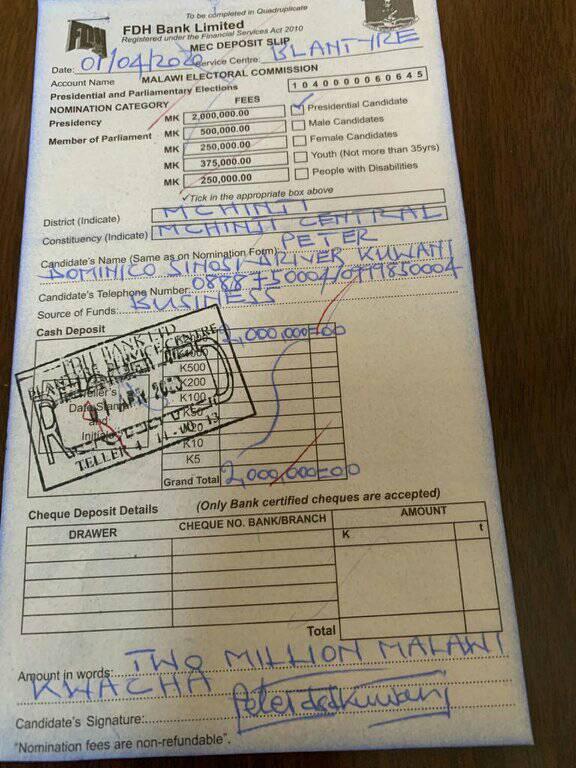 To be completed in Quadruplicate
FDH Bank Limited
Registered under the Financial Services Act 2010
MEC DEPOSIT SLIP
Date: 01/04/2020 Service Centre: BLANTYRE
Account Name MALAWI ELECTORAL COMMISSION
Presidential and Parliamentary Elections 1040000060645
NOMINATION CATEGORY FEES
Presidency MK 2,000,000.00 ✓ Presidential Candidate
Member of Parliament MK 500,000.00 Male Candidates
MK 250,000.00 Female Candidates
MK 375,000.00 Youth (Not more than 35yrs)
MK 250,000.00 People with Disabilities
✓Tick in the appropriate box above
District (Indicate) MCHINJI
Constituency (Indicate) MCHINJI CENTRAL
PETER
Candidate's Name (Same as on Nomination Form):
DOMINICO SINOSI DRIVER KUWANI
Candidate's Telephone Number: 0888750004/0999850004
Source of Funds: BUSINESS
Cash Deposit
2,000,000=00
FDH BANK LTD
BLANTYRE SERVICE CENTRE
K500
K200
K100
Date Stamp
and
K10
TELLER 4
K5
Grand Total 2,000,000=00
Cheque Deposit Details (Only Bank certified cheques are accepted)
DRAWER CHEQUE NO. BANK/BRANCH AMOUNT
K t
Total
Amount in words: TWO MILLION MALAWI
KWACHA
Candidate's Signature:
"Nomination fees are non-refundable".